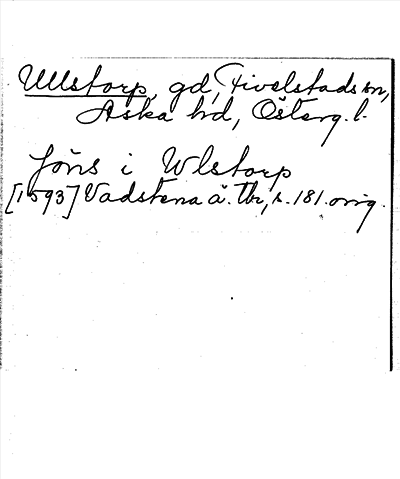 Ullstorp, gd, Fivelstads sn,
Aska hd, Österg. l.
Jöns i Wlstorp
[1593] Vadstena ä. Tb, s. 181. orig.